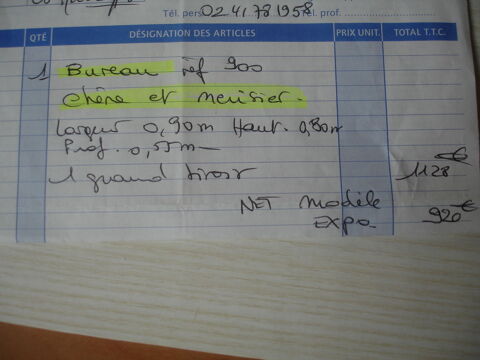 Tél. pers. 02 41 78 19 58 Tél. prof.
QTÉ DÉSIGNATION DES ARTICLES PRIX UNIT. TOTAL T.T.C.
1 Bureau réf 900
chêne et merisier.
Largeur 0,90m Haut. 0,80m
Prof. 0,55m
1 grand tiroir 1128€
NET Modèle
EXPO. 920€